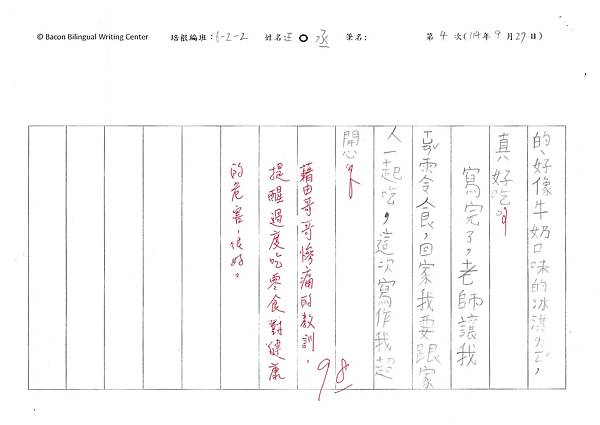 © Bacon Bilingual Writing Center 培根編班：6-2-2 姓名:王〇丞 筆名: 第 4 次(114年 9 月 27 日)
的，好像牛奶口味的冰淇ㄌㄧㄣˊ，
真好吃。
寫完了，老師讓我
零食，回家我要跟家
人一起吃，這次寫作我超
開心
藉由哥哥慘痛的教訓，
提醒過度吃零食對健康
的危害，很好。
98